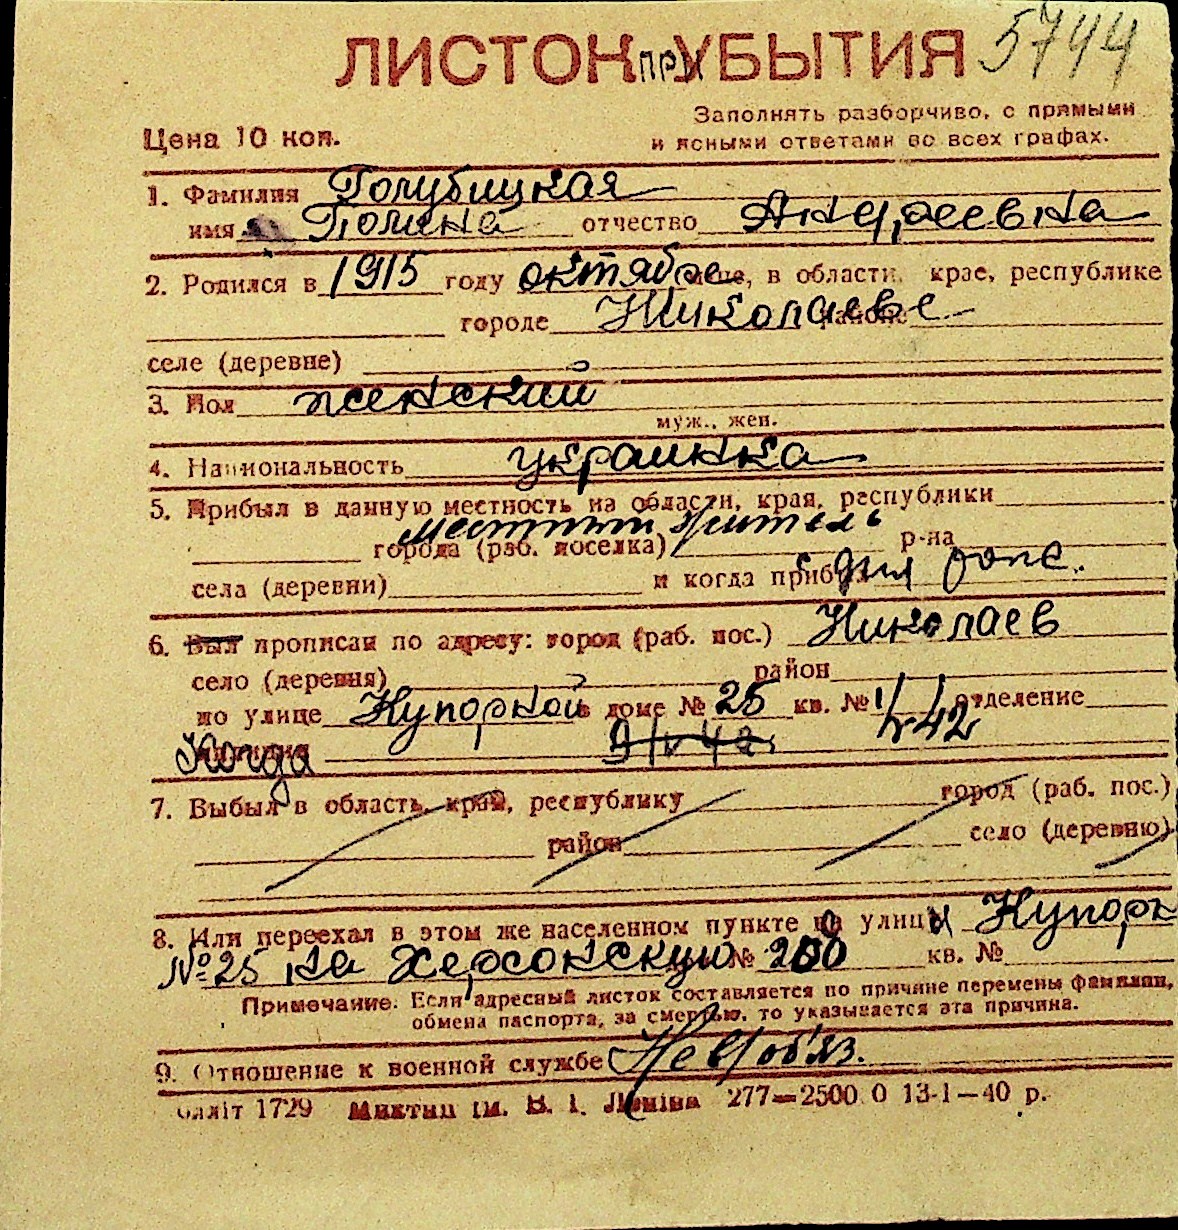 ЛИСТОК ПРИ УБЫТИЯ 5744
Заполнять разборчиво, с прямыми
Цена 10 коп. и ясными ответами во всех графах.
1. Фамилия Голубицкая
имя Полина отчество Андреевна
2. Родился в 1915 году октябре м-це, в области, крае, республике
городе Николаеве районе
селе (деревне)
3. Пол женский
муж., жен.
4. Национальность украинка
5. Прибыл в данную местность из области, края, республики
местный житель
города (раб. поселка) р-на
села (деревни) и когда прибыл с дня рожд.
6. Был прописан по адресу: город (раб. пос.) Николаев
село (деревня) район
по улице Купорной в доме № 25 кв. № отделение
Когда 9/IV 42 1/IV 42
7. Выбыл в область, край, республику город (раб. пос.)
район село (деревню)
8. Или переехал в этом же населенном пункте на улицу Купорн
№ 25 на Херсонскую № 200 кв. №
Примечание. Если адресный листок составляется по причине перемены фамилии,
обмена паспорта, за смертью, то указывается эта причина.
9. Отношение к военной службе Нев/обяз.
блліт 1729 Миктип ім. В. І. Леніна 277—2500 0 13-1—40 р.